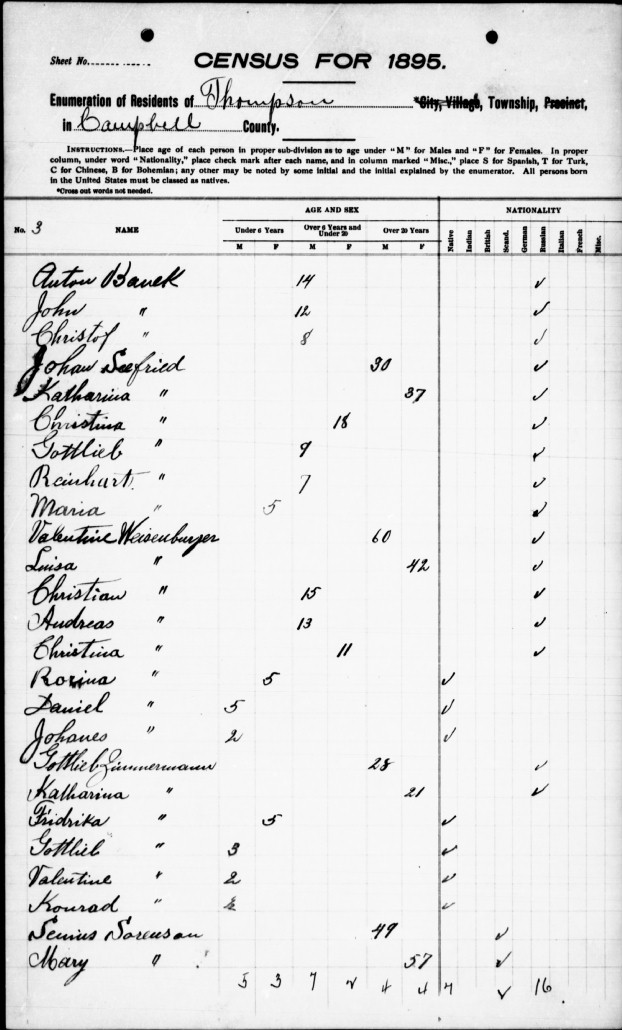 Sheet No. CENSUS FOR 1895.
Enumeration of Residents of Thompson *City, Village, Township, Precinct,
in Campbell County.
INSTRUCTIONS.—Place age of each person in proper sub-division as to age under "M" for Males and "F" for Females. In proper
column, under word "Nationality," place check mark after each name, and in column marked "Misc.," place S for Spanish, T for Turk,
C for Chinese, B for Bohemian; any other may be noted by some initial and the initial explained by the enumerator. All persons born
in the United States must be classed as natives.
*Cross out words not needed.
AGE AND SEX NATIONALITY
No. 3 NAME Under 6 Years Over 6 Years and Under 20 Over 20 Years Native Indian British Scand. German Russian Italian French Misc.
M F M F M F
Anton 14 ✓
John " 12 ✓
Christof " 8 ✓
Johan Seefried 30 ✓
Katharina " 37 ✓
Christina " 18 ✓
Gottlieb " 9 ✓
Reinhart " 7 ✓
Maria " 5 ✓
Valentine Weisenburger 60 ✓
Luisa " 42 ✓
Christian " 15 ✓
Andreas " 13 ✓
Christina " 11 ✓
Rosina " 5 ✓
Daniel " 5 ✓
Johanes " 2 ✓
Gottlieb Zimmermann 28 ✓
Katharina " 21 ✓
Fridrika " 5 ✓
Gottlieb " 3 ✓
Valentine " 2 ✓
Konrad " ✓
Sorenson 49 ✓
Mary " 57 ✓
5 3 7 2 4 4 7 2 16